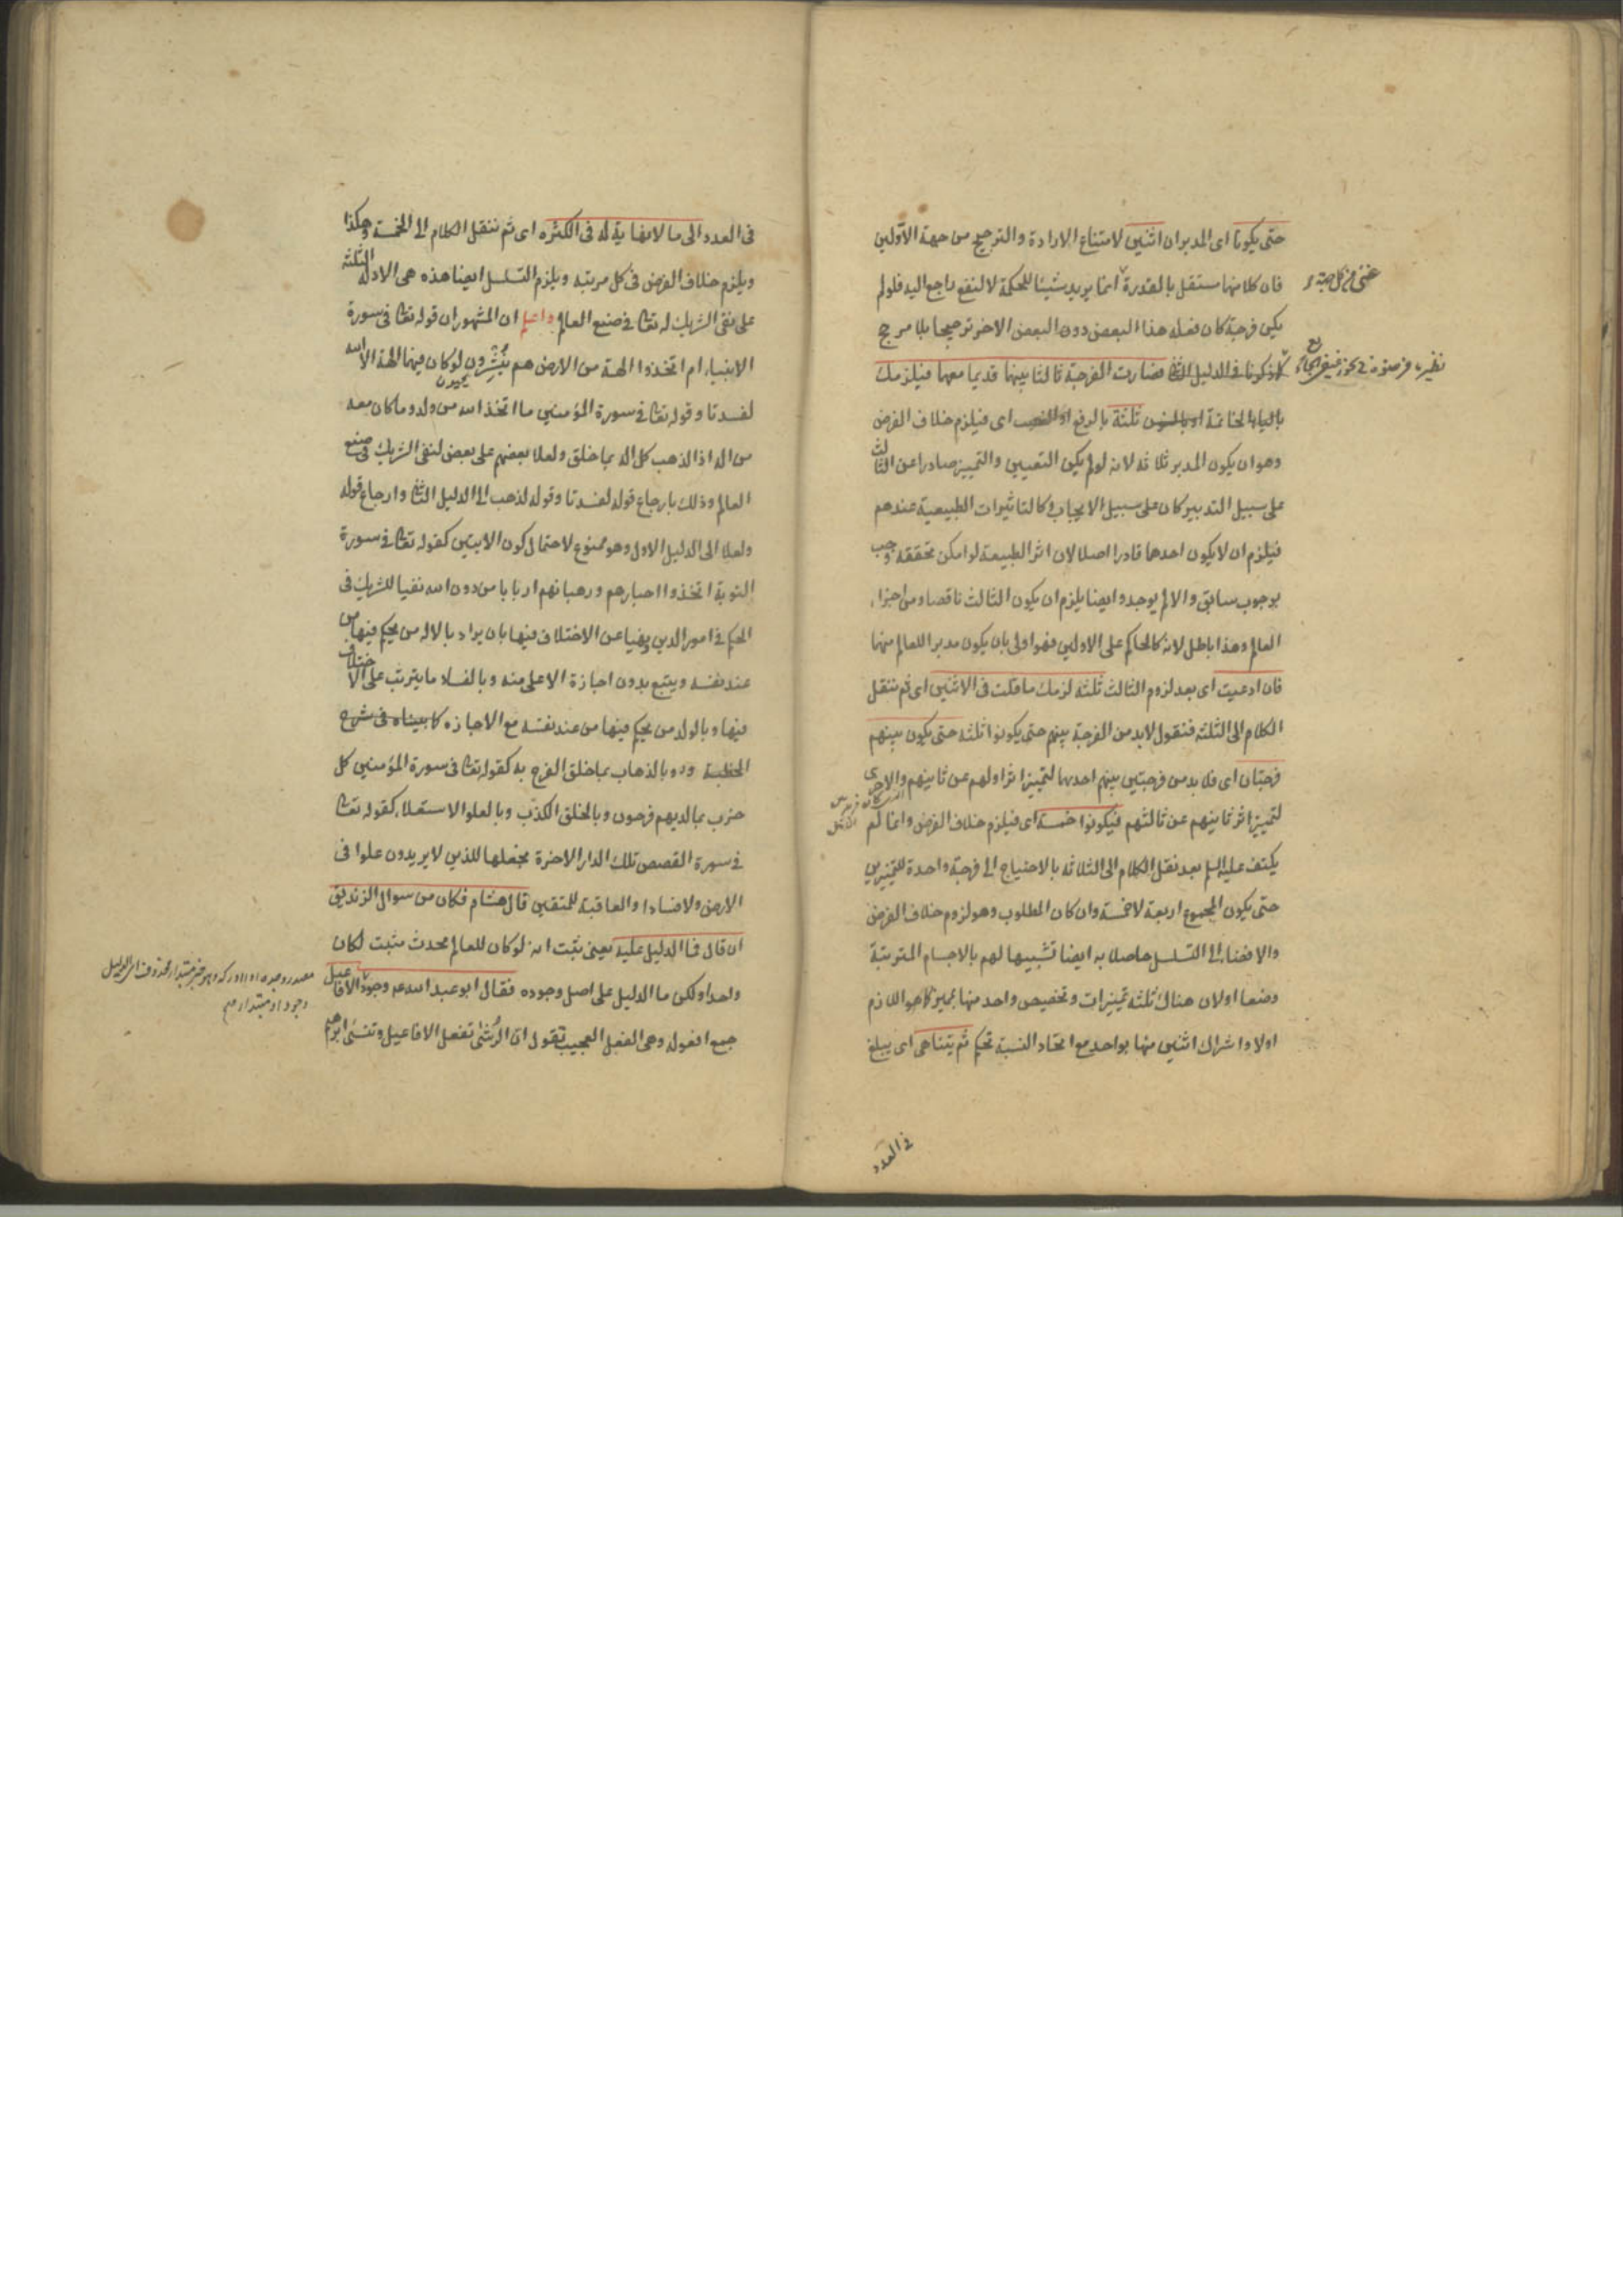 حتى يكونا اى المدبران اثنين لامتناع الارادة والترجيح من جهة الاولين
فان كلا منهما مستقل بالقدرة انما يريد شيئا للحكمة لا لنفع راجع اليه فلو لم
غنى من كل جهة
يكن فرجة كان فعله هذا البعض دون البعض الاخر ترجيحا بلا مرجح
كما ذكرنا فى الدليل الثانى فصارت الفرجة ثالثا بينهما قديما معهما فيلزمك
بالياء الخاتمة ثلثة بالرفع او النصب اى فيلزم خلاف الفرض
وهو ان يكون المدبر ثلاثة لانه لو لم يكن التعيين والتمييز صادرا عن الثالث
على سبيل التدبير كان على سبيل الايجاب وكالتاثيرات الطبيعية عندهم
فيلزم ان لا يكون احدهما قادرا اصلا لان اثر الطبيعة لو امكن تحققه وجب
بوجوب سابق والا لم يوجد وايضا يلزم ان يكون الثالث ناقصا ومن اجزاء
العالم وهذا باطل لانه كالحاكم على الاولين فهو اولى بان يكون مدبرا للعالم منهما
فان ادعيت اى بعد لزوم الثالث ثلثة لزمك ما قلت فى الاثنين اى ثم ننقل
الكلام الى الثلثة فنقول لا بد من الفرجة بينهم حتى يكونوا ثلثة حتى يكون بينهم
فرجتان اى فلا بد من فرجتين بينهم احديهما لتمييز اثر اولهم عن ثانيهم والاخرى
لتمييز اثر ثانيهم عن ثالثهم فيكونوا خمسة اى فيلزم خلاف الفرض وانما لم
يكتف عليه السلم بعد نقل الكلام الى الثلاثة بالاحتياج الى فرجة واحدة للتمييزين
حتى يكون المجموع اربعة لا خمسة وان كان المطلوب وهو لزوم خلاف الفرض
والافضاء الى التسلسل حاصلا به ايضا تشبيها لهم بالاجسام المترتبة
وضعا اولان هناك ثلثة تمييزات وتخصيص واحد منها بمميز كما هو اللازم
اولا واشراك اثنين منها بواحد مع اتحاد النسبة تحكم ثم يتناهى اى يبلغ
فى العدد
فى العدد الى ما لا نهاية له فى الكثرة اى ثم ننقل الكلام الى الخمسة وهكذا
ويلزم خلاف الفرض فى كل مرتبة ويلزم التسلسل ايضا هذه هى الادلة الثلثة
على نفى الشريك له تعالى فى صنع العالم واعلم ان المشهور ان قوله تعالى فى سورة
الانبياء ام اتخذوا الهة من الارض هم ينشرون لو كان فيهما الهة الا الله
يحيون
لفسدتا وقوله تعالى فى سورة المؤمنين ما اتخذ الله من ولد وما كان معه
من اله اذا لذهب كل اله بما خلق ولعلا بعضهم على بعض لنفى الشريك فى صنع
العالم وذلك بارجاع قوله لفسدتا وقوله لذهب الى الدليل الثانى وارجاع قوله
ولعلا الى الدليل الاول وهو ممنوع لاحتمال كون الايتين كقوله تعالى فى سورة
التوبة اتخذوا احبارهم ورهبانهم اربابا من دون الله نفيا للشريك فى
الحكم فى امور الدين ونهيا عن الاختلاف فيها بان يراد بالاله من يحكم فيها من
عند نفسه ويتبع بدون اجازة الاعلى منه وبالفساد ما يترتب على الاختلاف
فيها وبالولد من يحكم فيها من عند نفسه مع الاجازة كما بيناه فى شرح
الخطبة وبالذهاب بما خلق الفرح به كقوله تعالى فى سورة المؤمنين كل
حزب بما لديهم فرحون وبالخلق الكذب وبالعلو الاستعلاء كقوله تعالى
فى سورة القصص تلك الدار الاخرة نجعلها للذين لا يريدون علوا فى
الارض ولا فسادا والعاقبة للمتقين قال هشام فكان من سؤال الزنديق
ان قال فما الدليل عليه يعنى يثبت انه لو كان للعالم محدث مثبت لكان
واحدا ولكن ما الدليل على اصل وجوده فقال ابو عبد الله عم وجود الافاعيل
جمع افعولة وهى الفعل العجيب تقول ان الرشى تفعل الافاعيل وتنسى ابرهيم